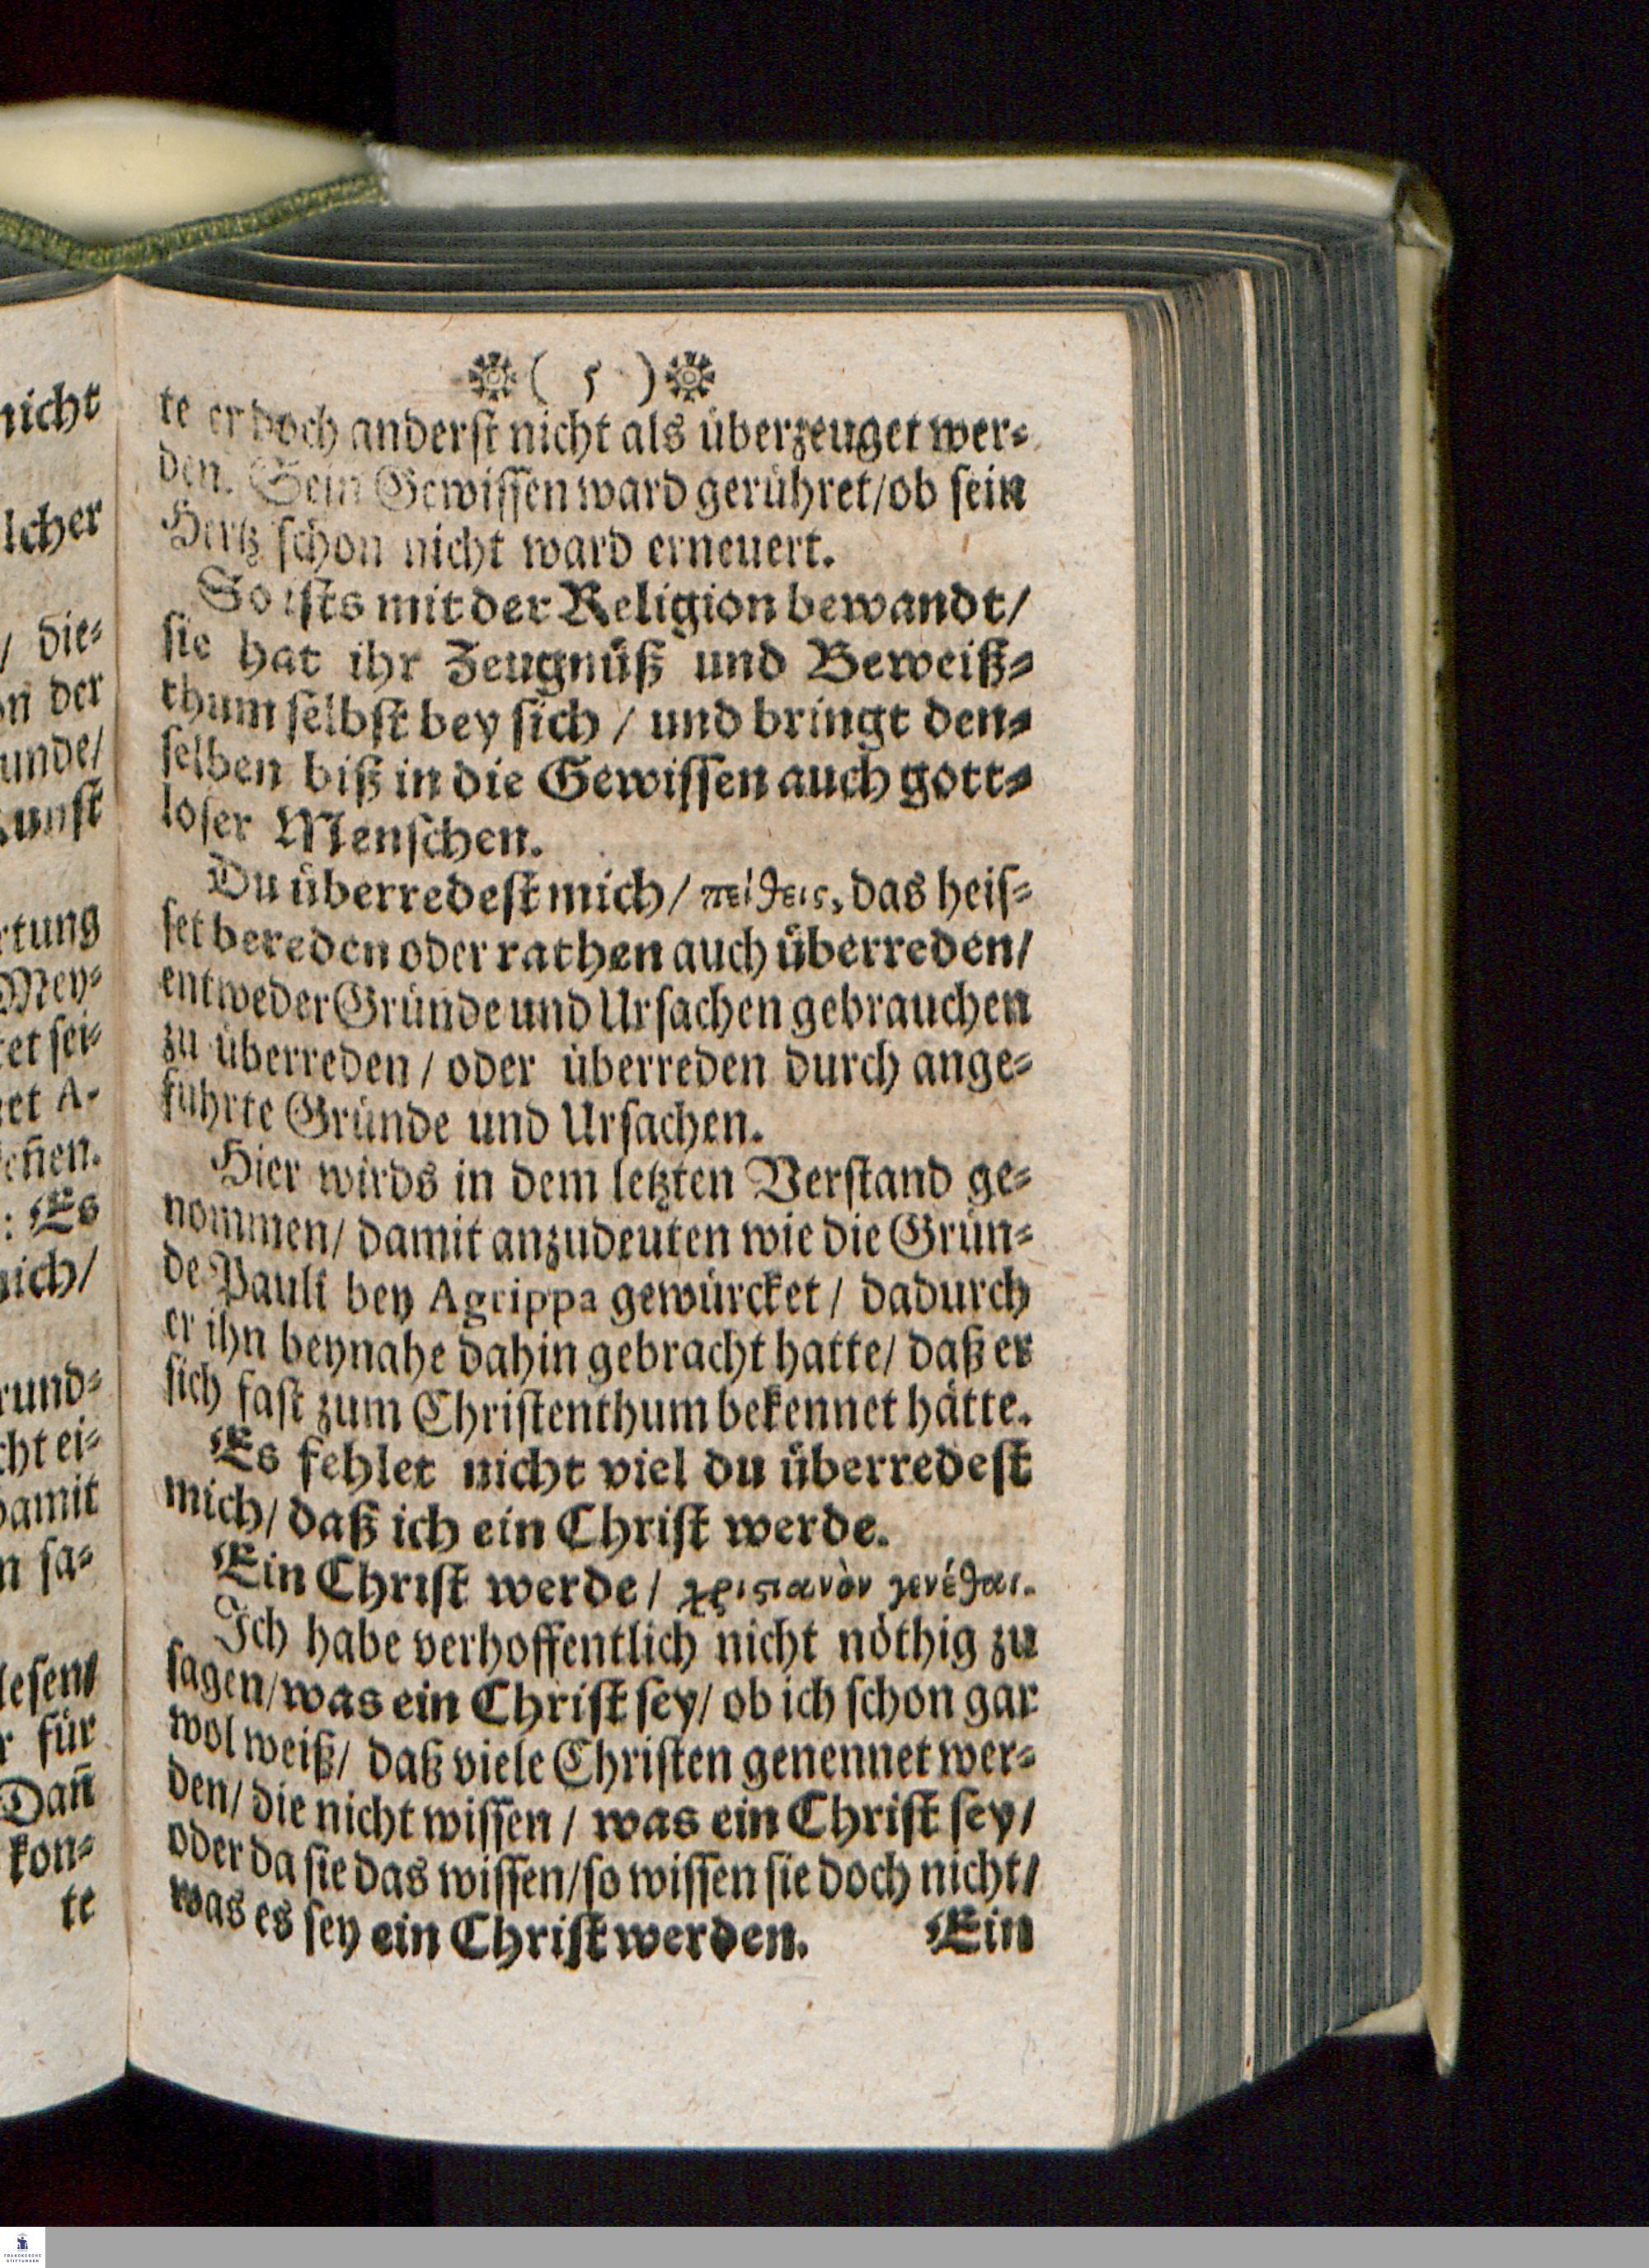 nicht
lcher
/ die⸗
on der
unde/
kunst
rtung
Mey⸗
tet sei⸗
net A-
señen.
: Es
mich/
rund⸗
cht ei⸗
damit
n sa⸗
lesen/
r für
Dañ
kon⸗
te
( 5 )
te er doch anderst nicht als überzeuget wer⸗
den. Sein Gewissen ward gerühret/ob sein
Hertz schon nicht ward erneuert.
So ists mit der Religion bewandt/
sie hat ihr Zeugnüß und Beweiß⸗
thum selbst bey sich / und bringt den⸗
selben biß in die Gewissen auch gott⸗
loser Menschen.
Du überredest mich/ πείθεις, das heis⸗
set bereden oder rathen auch überreden/
entweder Gründe und Ursachen gebrauchen
zu überreden / oder überreden durch ange⸗
führte Gründe und Ursachen.
Hier wirds in dem letzten Verstand ge⸗
nommen/ damit anzudeuten wie die Grün⸗
de Pauli bey Agrippa gewürcket / dadurch
er ihn beynahe dahin gebracht hatte/ daß er
sich fast zum Christenthum bekennet hätte.
Es fehlet nicht viel du überredest
mich/ daß ich ein Christ werde.
Ein Christ werde / χριςιανὸν γενέθαι.
Ich habe verhoffentlich nicht nöthig zu
sagen/was ein Christ sey/ ob ich schon gar
wol weiß/ daß viele Christen genennet wer⸗
den/ die nicht wissen / was ein Christ sey/
oder da sie das wissen/so wissen sie doch nicht/
was es sey ein Christ werden. Ein
FRANCKESCHE
STIFTUNGEN